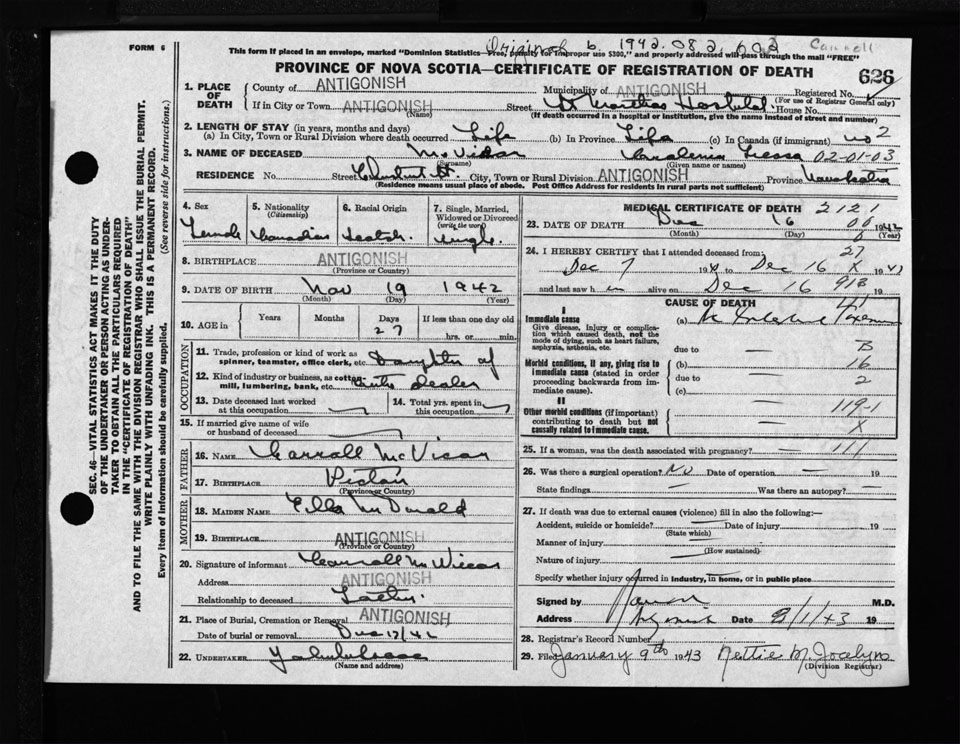 FORM 6
Original 6. 1942.082.603 Cannell
This form if placed in an envelope, marked "Dominion Statistics—Free, penalty for improper use $300," and properly addressed will pass through the mail "FREE"
PROVINCE OF NOVA SCOTIA—CERTIFICATE OF REGISTRATION OF DEATH
626
1. PLACE OF DEATH
County of ANTIGONISH Municipality of ANTIGONISH Registered No.
(For use of Registrar General only)
If in City or Town ANTIGONISH Street St Marthas Hospital House No.
(Name) (If death occurred in a hospital or institution, give the name instead of street and number)
2. LENGTH OF STAY (in years, months and days)
(a) In City, Town or Rural Division where death occurred Life (b) In Province Life (c) In Canada (if immigrant) no 2
3. NAME OF DECEASED McVicar 02-01-03
(Surname) (Given name or names)
RESIDENCE No. Street City, Town or Rural Division ANTIGONISH Province Nova Scotia
(Residence means usual place of abode. Post Office Address for residents in rural parts not sufficient)
4. Sex Female
5. Nationality (Citizenship) Canadian
6. Racial Origin Scotch
7. Single, Married, Widowed or Divorced (write the word) Single
8. BIRTHPLACE ANTIGONISH
(Province or Country)
9. DATE OF BIRTH Nov 19 1942
(Month) (Day) (Year)
10. AGE in Years Months Days 27 If less than one day old
hrs. or min.
OCCUPATION
11. Trade, profession or kind of work as spinner, teamster, office clerk, etc. Daughter of
12. Kind of industry or business, as cotton-mill, lumbering, bank, etc. auto dealer
13. Date deceased last worked at this occupation
14. Total yrs. spent in this occupation
15. If married give name of wife or husband of deceased
FATHER
16. NAME Carroll McVicar
17. BIRTHPLACE Pictou
(Province or Country)
MOTHER
18. MAIDEN NAME Ella McDonald
19. BIRTHPLACE ANTIGONISH
(Province or Country)
20. Signature of informant Carroll McVicar
Address ANTIGONISH
Relationship to deceased Father.
21. Place of Burial, Cremation or Removal ANTIGONISH
Date of burial or removal Dec 17/42
22. UNDERTAKER
(Name and address)
MEDICAL CERTIFICATE OF DEATH 2121
23. DATE OF DEATH Dec 16 1942
(Month) (Day) (Year)
24. I HEREBY CERTIFY that I attended deceased from: 27
Dec 7 19 to Dec 16 1942
and last saw h alive on Dec 16 19
CAUSE OF DEATH
I
Immediate cause
Give disease, injury or complication which caused death, not the mode of dying, such as heart failure, asphyxia, asthenia, etc.
(a) Intestinal Toxemia
due to — B
Morbid conditions, if any, giving rise to immediate cause (stated in order proceeding backwards from immediate cause).
(b) — 16
due to — 2
(c)
II
119-1
Other morbid conditions (if important) contributing to death but not causally related to immediate cause. — X
25. If a woman, was the death associated with pregnancy? — 111
26. Was there a surgical operation? No Date of operation — 19
State findings — Was there an autopsy? —
27. If death was due to external causes (violence) fill in also the following:—
Accident, suicide or homicide? — Date of injury 19
(State which)
Manner of injury
(How sustained)
Nature of injury —
Specify whether injury occurred in industry, in home, or in public place
Signed by M.D.
Address Antigonish Date 8/1/43 19
28. Registrar's Record Number
29. Filed January 9th 1943 Nettie M. Jocelyn
(Division Registrar)
SEC. 46—VITAL STATISTICS ACT MAKES IT THE DUTY
OF THE UNDERTAKER OR PERSON ACTING AS UNDER-
TAKER TO OBTAIN ALL THE PARTICULARS REQUIRED
IN THE "CERTIFICATE OF REGISTRATION OF DEATH"
AND TO FILE THE SAME WITH THE DIVISION REGISTRAR WHO SHALL ISSUE THE BURIAL PERMIT.
WRITE PLAINLY WITH UNFADING INK. THIS IS A PERMANENT RECORD.
Every item of information should be carefully supplied. (See reverse side for instructions.)